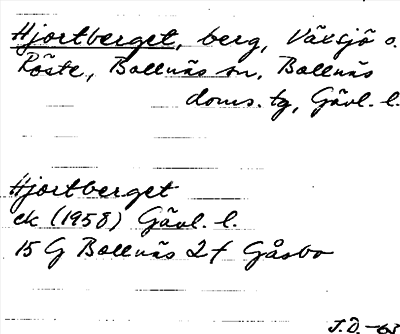 Hjortberget, berg, Växsjö o.
Röste, Bollnäs sn, Bollnäs
doms. tg, Gävl. l.
Hjortberget
ek (1958) Gävl. l.
15 G Bollnäs 2 f Gåsbo
J.D. -63